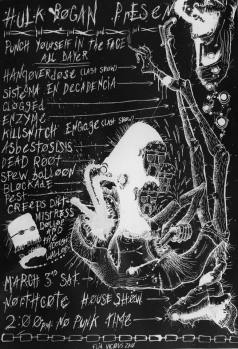 HULK BOGAN PRESENTS
PUNCH YOURSELF IN THE FACE
ALL DAYER
HANGOVERDOSE (LAST SHOW)
SISTEMA EN DECADENCIA
CLOGGED
ENZYME
KILLSWITCH ENGAGE (LAST SHOW)
ASBESTOSISIS
DEAD ROOT
SPEW BALLOON
BLOCKADE
PEST
CREEPS DIET
MISTRESS
AND
THE
MARCH 3RD SAT.
NORTHCOTE HOUSE SHOW
2:00PM NO PUNK TIME